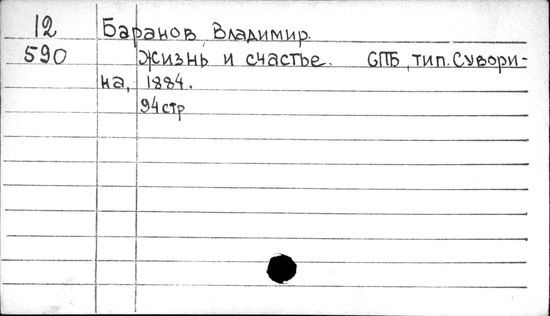 12 Баранов, Владимир.
590 Жизнь и счастье. СПБ, тип. Сувори-
на, 1884.
94 стр